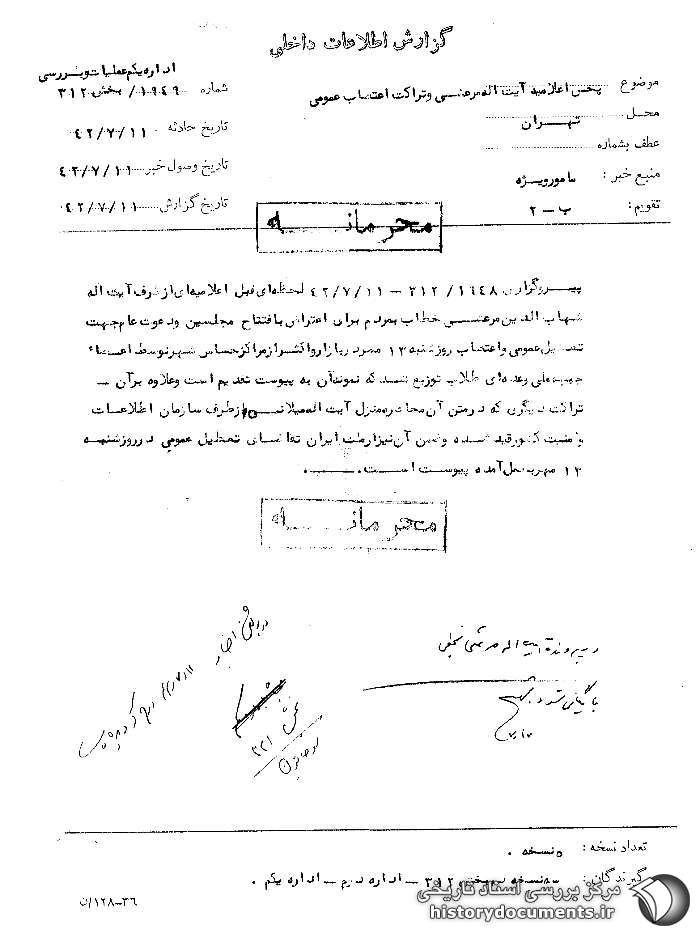 گزارش اطلاعات داخلی
اداره یکم عملیات و بررسی
موضوع پخش اعلامیه آیت اله مرعشی و تراکت اعتصاب عمومی
شماره ۱۹۴۹/ بخش ۳۱۲
محل تهران
تاریخ حادثه ۴۲/۷/۱۱
عطف بشماره
تاریخ وصول خبر ۴۲/۷/۱۱
منبع خبر : مامور ویژه
تاریخ گزارش ۴۲/۷/۱۱
تقویم: ب – ۲
محرمانه
پیرو گزارش ۱۶۴۸/ ۳۱۲ – ۴۲/۷/۱۱ لحظه‌ای قبل اعلامیه‌ای از طرف آیت اله
شهاب الدین مرعشی خطاب بمردم برای اعتراض بافتتاح مجلسین و دعوت عام جهت
تعطیل عمومی و اعتصاب روز شنبه ۱۳ مهر در بازار و اکثر از مراکز حساس شهر توسط اعضاء
جبهه ملی و عده‌ای طلاب توزیع شد که نمونه آن به پیوست تقدیم است و علاوه بر آن –
تراکت دیگری که در متن آن محاصره منزل آیت اله میلانی از طرف سازمان اطلاعات
و امنیت کشور قید شده و ضمن آن نیز از ملت ایران تقاضای تعطیل عمومی در روز شنبه
۱۳ مهر بعمل آمده پیوست است.
محرمانه
در پرونده آیت اله مرعشی نجفی
بایگانی شود
بخش ۳۲۱
تعداد نسخه : ۵ نسخه .
گیرندگان: سه نسخه بخش ۳۱۲ – اداره دوم – اداره یکم .
۳۶–۱۲۸/ن
مرکز بررسی اسناد تاریخی
historydocuments.ir